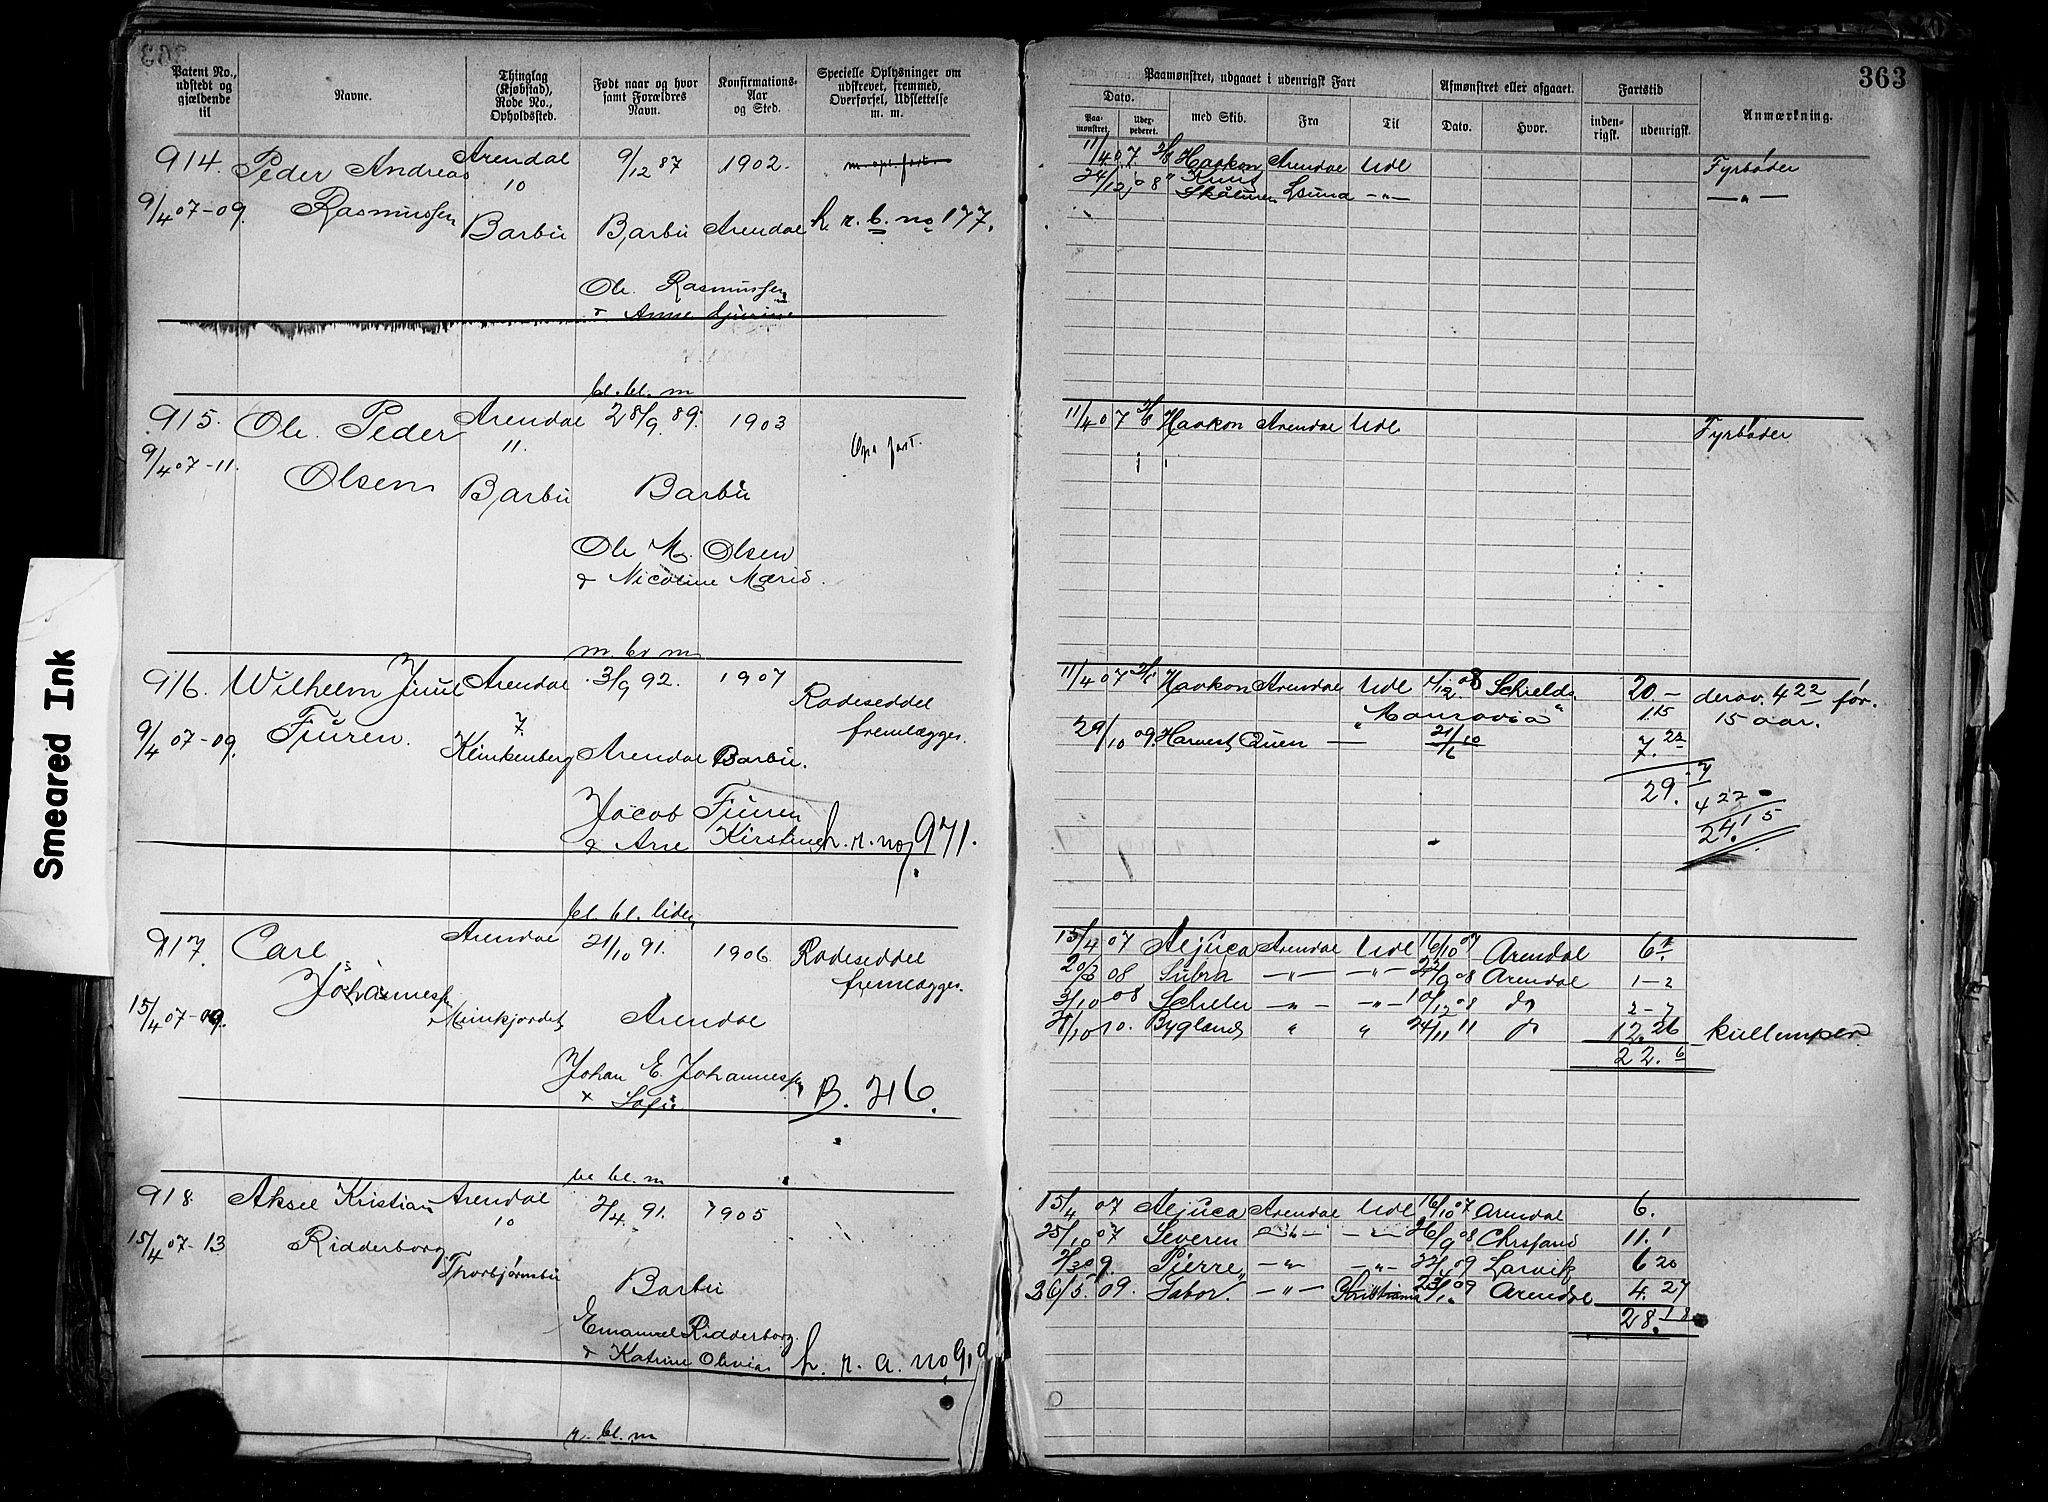 363
Smeared Ink
Patent No., udstedt og gjældende til
Navne.
Thinglag (Kjøbstad), Rode No., Opholdssted.
Født naar og hvor samt Forældres Navn.
Konfirmations-Aar og Sted.
Specielle Oplysninger om udskrevet, fremmed, Overførsel, Udslettelse m. m.
Paamønstret, udgaaet i udenrigsk Fart
Dato.
Paa-mønstret.
Udex-pederet.
med Skib.
Fra
Til
Afmønstret eller afgaaet.
Dato.
Hvor.
Fartstid
inden-rigsk.
udenrigsk.
Anmærkning.
914. Peder Andreas Arendal 9/12 87 1902. 11/4 07 Haakon Arendal Udl Fyrbøder
9/4 07-09. Rasmussen 10 Barbu Barbu Arendal h. r. b. no 177. 24/12 08 — " —
Ole Rasmussen
bl. bl. m
915. Ole Peder Arendal 28/9 89. 1903 11/4 07 Haakon Arendal Udl Fyrbøder
11.
9/4 07-11. Olsen Barbu Barbu
Ole M. Olsen
& Nicoline Marie.
916. Wilhelm Juul Arendal 3/9 92. 1907 Rodeseddel 11/4 07 Haakon Arendal Udl Schields 20 – derav 4 22 før
7. fremlægges. 1.15 15 aar.
9/4 07-09. Furen. Klinkenberg Arendal Barbu. 29/10 09. Harvest Quen — 21/6 10 7.
29.
Jacob Furen 4 22
Kirstine h. r. no 971. 24.15
bl. bl. liden
917. Carl Arendal 21/10 91. 1906 Rodeseddel 15/4 07 Aljuca Arendal Udl 16/10 07 Arendal 6.
Johannessen fremlægges. 08 Subra — " — — " — Arendal 1–2
15/4 07-09. Arendal 3/10 08 — " — — " — 10/12 08 do 2–7
10. Bygland " " 24/11 11 do 12.26
22. 6
Johan E. Johannessen
Sofie B. 216.
bl. bl. m
918 Aksel Kristian Arendal 2/4 91. 1905 15/4 07 Aljuca Arendal Udl 16/10 07 Arendal 6.
10
15/4 07-13 Ridderborg Thorbjørnsbu Barbu 25/10 07 Severen — " — — " — 26/9 08 Chrsfand 11. 1
Pierre — " — — " — Larvik 6 20
26/5 09. Tabor — " — Kristiania Arendal 4. 27
28. 18
Emanuel Ridderborg
& Katrine Olivia h. r. a. no
bl. m